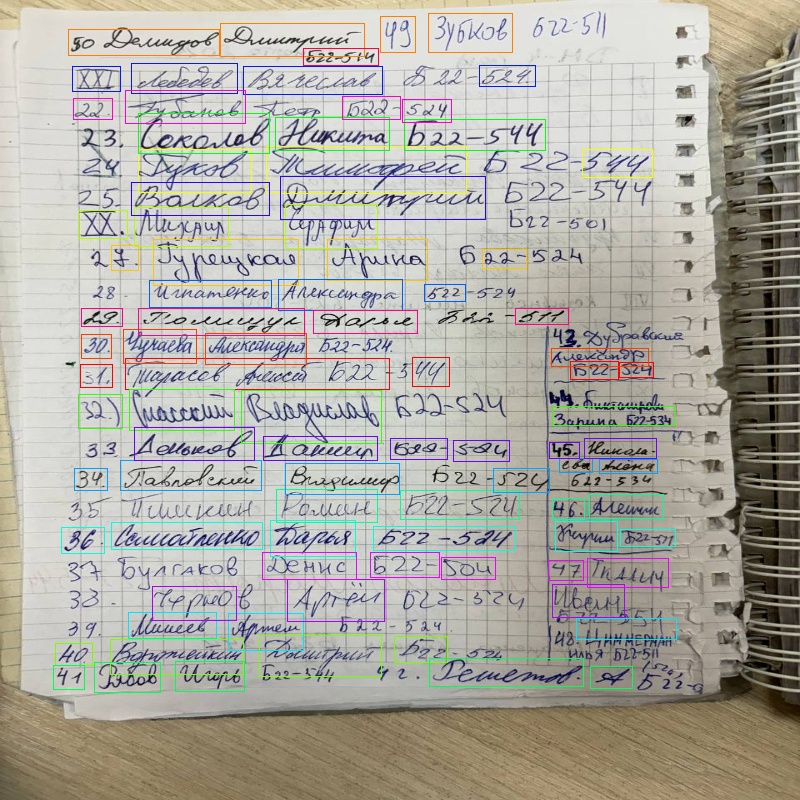 50 Демидов Дмитрий
Б22-514
49 Зубков Б22-511
XXI Лебедев Вячеслав Б22-524.
22. Губанов Петр Б22-524
23. Соколов Никита Б22-544
24. Гуков Тимофей Б22-544
25. Волков Дмитрий Б22-544
XX. Михаил Серафим Б22-501
27. Гурецкая Арина Б22-524
28. Игнатенко Александра Б22-524
29. Полищук Дарья Б22-511
30. Чучаева Александра Б22-524.
31. Тарасов Алексей Б22-544
32.) Спасский Владислав Б22-524
33. Деньков Даниил Б22-524
34. Павловский Владимир Б22-524
35 Пишкин Роман Б22-524
36. Самойленко Дарья Б22-524
37 Булгаков Денис Б22-504
38. Чернов Артём Б22-524
39. Мишеев Артем Б22-524.
40. Воротейкин Дмитрий Б22-524
41 Рябов Игорь Б22-544
42. Решетов. А Б22-
43. Дубравский
Александр
Б22-524
44.
Зарина Б22-534
45. Никола-
ева Алена
Б22-534
46. Алешин
Кирилл Б22-511
47 Ткалич
Иван
Б22-534
48. Циммерман
Илья Б22-511